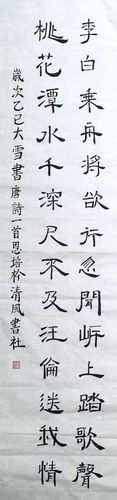 李白乗舟将欲行忽聞岍上踏歌聲
桃花潭水千深尺不及汪倫送我情
歲次乙巳大雪書唐詩一首恩培於清風書社